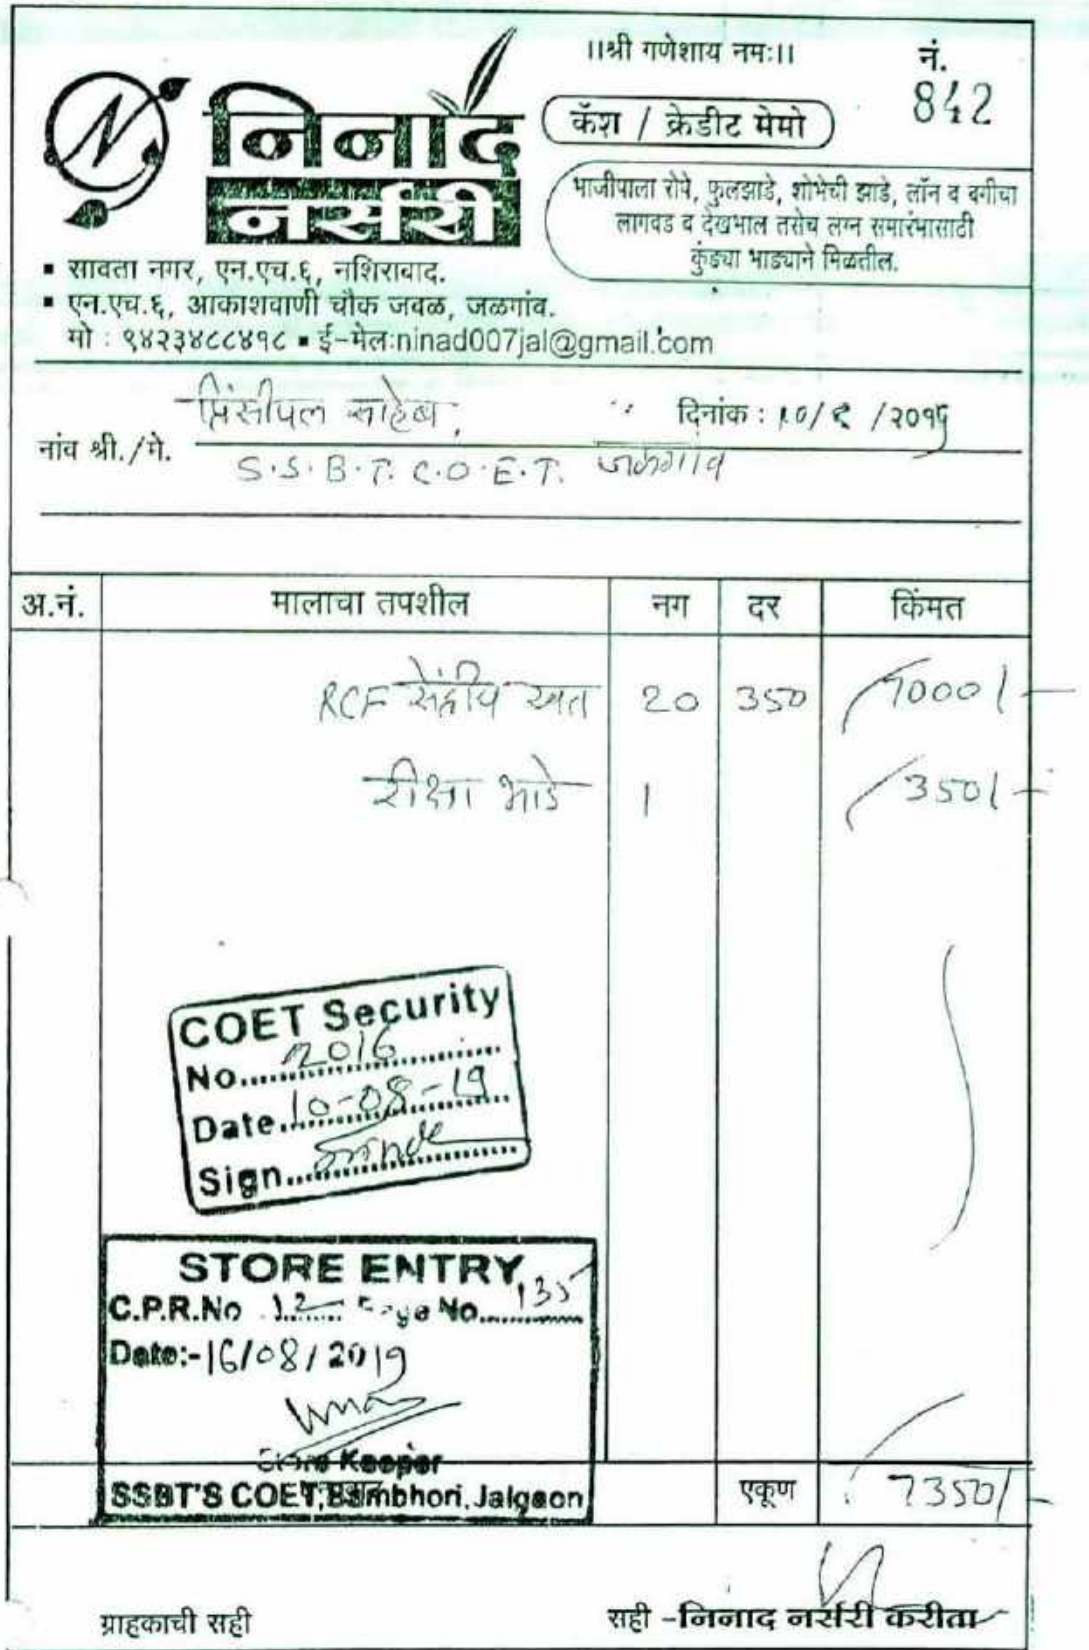 ।।श्री गणेशाय नमः।।
नं.
842
निनाद
नर्सरी
कॅश / क्रेडीट मेमो
भाजीपाला रोपे, फुलझाडे, शोभेची झाडे, लॉन व बगीचा
लागवड व देखभाल तसेच लग्न समारंभासाठी
कुंड्या भाड्याने मिळतील.
▪ सावता नगर, एन.एच.६, नशिराबाद.
▪ एन.एच.६, आकाशवाणी चौक जवळ, जळगांव.
मो : ९४२३४८८४१८ ▪ ई-मेल:ninad007jal@gmail.com
प्रिंसीपल साहेब,
दिनांक : १०/८ /२०१९
नांव श्री./मे.
S.S.B.T. C.O.E.T. जळगाव
अ.नं. मालाचा तपशील नग दर किंमत
RCF सेंद्रीय खत 20 350 7000/-
रीक्षा भाडे 1 350/-
COET Security
No. 2016
Date 10-08-19
Sign
STORE ENTRY
C.P.R.No 12 Page No. 135
Date:- 16/08/2019
Store Keeper
SSBT'S COET, Bambhori, Jalgaon
एकूण 7350/-
ग्राहकाची सही
सही -निनाद नर्सरी करीता